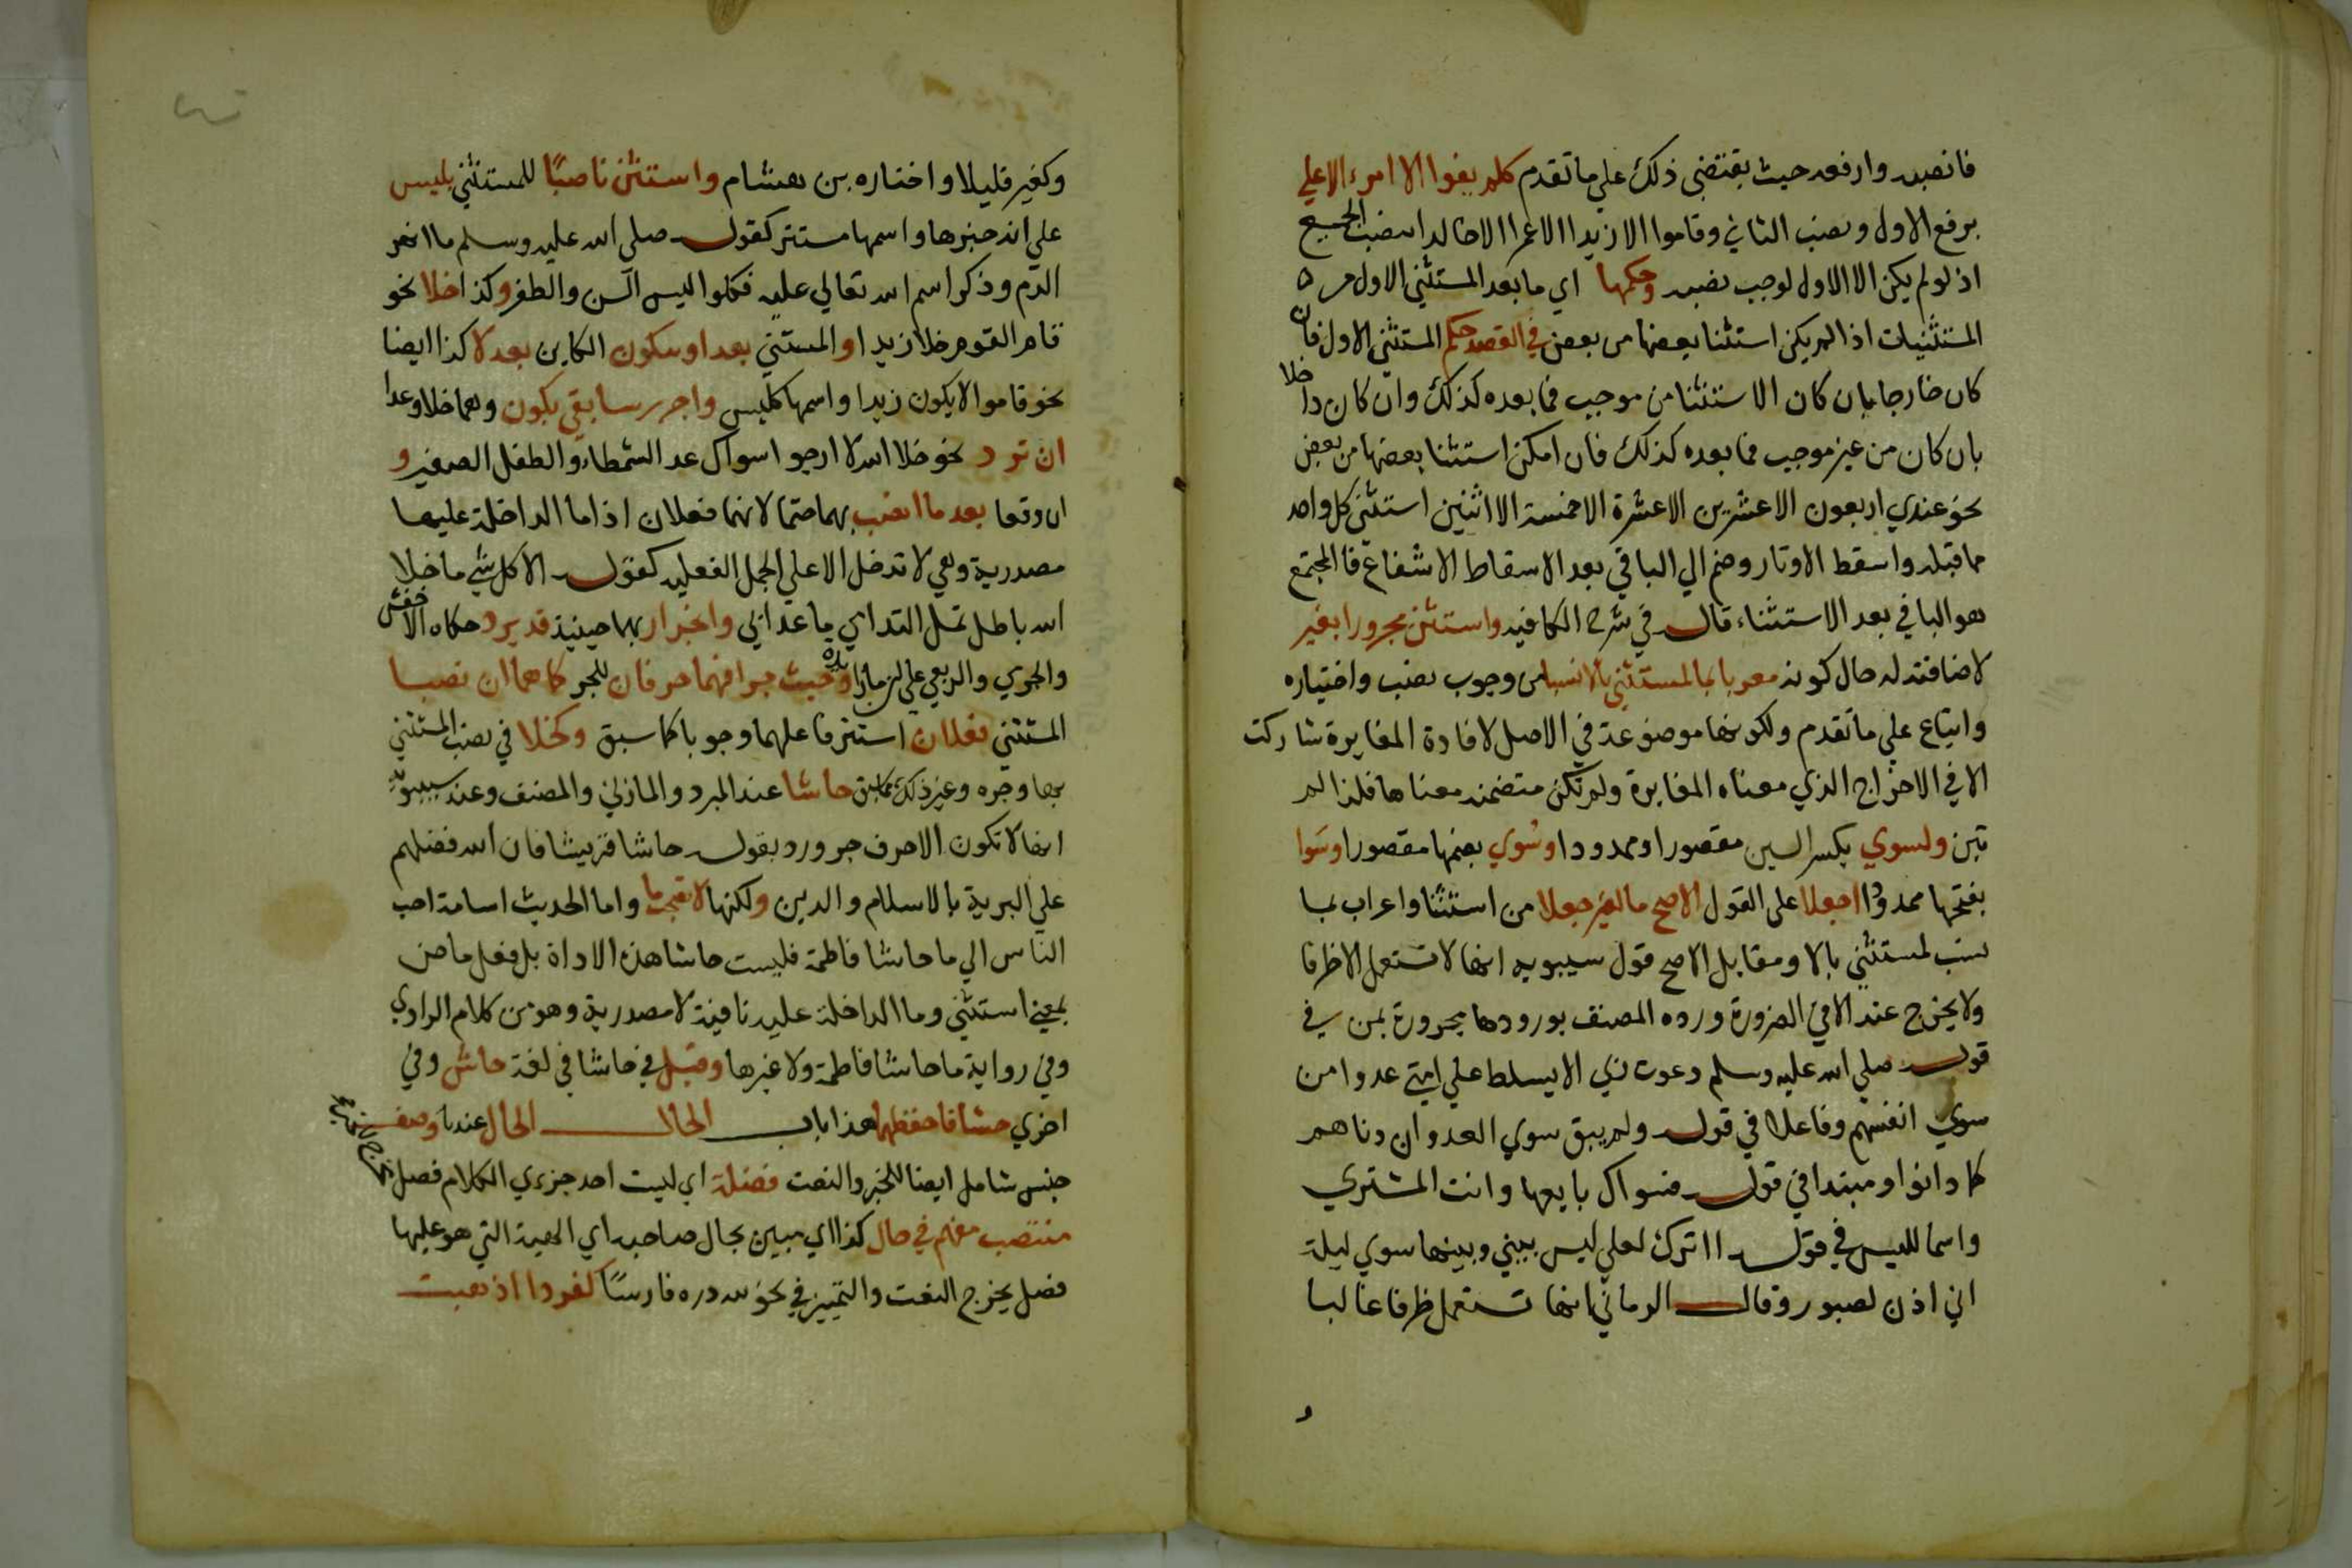 فانصبه وارفعه حيث يقتضي ذلك علي ما تقدم كلم يفوا الا امرء الا علي
برفع الاول ونصب الثاني وقاموا الا زيدا الا عمرا الا خالدا بنصب الجميع
اذ لو لم يكن الا الاول لوجب نصبه وحكمها اي ما بعد المستثني الاول من
المستثنيات اذا لم يكن استثنا بعضها من بعض في القصد حكم المستثني الاول فان
كان خارجا بان كان الاستثنا من موجب فما بعده كذلك وان كان داخلا
بان كان من غير موجب فما بعده كذلك فان امكن استثنا بعضها من بعض
نحو عندي اربعون الا عشرين الا عشرة الا خمسة الا اثنين استثني كل واحد
مما قبله واسقط الاوتار وضم الي الباقي بعد الاسقاط الاشفاع فالمجتمع
هو الباقي بعد الاستثناء قال في شرح الكافيه واستثن مجرورا بغير
لاضافته له حال كونه معربا بما لمستثني بالا نسبا من وجوب نصب واختياره
واتباع علي ما تقدم ولكونها موضوعة في الاصل لافادة المغايرة شاركت
الا في الاخراج الذي معناه المغايرة ولم تكن متضمنه معناها فلذا لم
تبن ولسوي بكسر السين مقصورا وممدودا وسُوي بضمها مقصورا وسَوا
بفتحها ممدودا اجعلا علي القول الاصح ما لغير جعلا من استثنا واعراب بما
نسب لمستثني بالا ومقابل الاصح قول سيبويه انها لا تستعمل الا ظرفا
ولا يخرج عنه الا في الضرورة ورده المصنف بورودها مجرورة بمن في
قوله صلي الله عليه وسلم دعوت ربي الا يسلط علي امتي عدوا من
سوي انفسهم وفاعلا في قوله ولم يبق سوي العدوان دناهم
كما دانوا ومبتدا في قوله فسواك بايعها وانت المشتري
واسما لليس في قوله ااترك ليلي ليس بيني وبينها سوي ليلة
اني اذن لصبور وقال الرماني انها تستعمل ظرفا غالبا
وكغير قليلا واختاره بن هشام واستثن ناصبًا للمستثني بليس
علي انه خبرها واسمها مستتر كقوله صلي الله عليه وسلم ما انهر
الدم وذكر اسم الله تعالي عليه فكلوا ليس السن والظفر وكذا خلا نحو
قام القوم خلا زيدا والمستثني بعدا وبيكون الكاين بعد لا كذا ايضا
نحو قاموا لا يكون زيدا واسمها كليس واجرر بسابقي يكون وهما خلا وعدا
ان ترد نحو خلا الله لا ارجو سواك عدا الشمطاء والطفل الصغير و
ان وقعا بعد ما انصب بهما حتما لانهما فعلان اذ ما الداخلة عليهما
مصدرية وهي لا تدخل الا علي الجمل الفعليه كقوله الا كل شي ما خلا
الله باطل تمل الندامي ما عداني وانجرار بهما حينيذ قد يرد حكاه الاخفش
والجرمي والربعي علي ان ما زايدة وحيث جرا فهما حرفان للجر كما هما ان نصبا
المستثني فعلان استتر فاعلهما وجوبا كما سبق وكخلا في نصب المستثني
بها وجره وغير ذلك مما سبق حاشا عند المبرد والمازني والمصنف وعند سيبويه
انها لا تكون الا حرف جر ورد بقوله حاشا قريشا فان الله فضلهم
علي البرية بالاسلام والدين ولكنها لا تصحب ما واما الحديث اسامة احب
الناس الي ما حاشا فاطمة فليست حاشا هذه الاداة بل فعل ماض
بمعني استثني وما الداخلة عليه نافية لا مصدرية وهو من كلام الراوي
وفي رواية ما حاشا فاطمة ولا غيرها وقيل في حاشا في لغة حاش وفي
اخري حشا فاحفظهما هذا باب الحال الحال عندنا وصف
جنس شامل ايضا للخبر والنعت فضلة اي ليست احد جزءي الكلام فصل
منتصب مفهم في حال كذا اي مبين لحال صاحبه اي الهيئة التي هو عليها
فصل يخرج النعت والتمييز في نحو لله دره فارسًا كفردا اذهبت